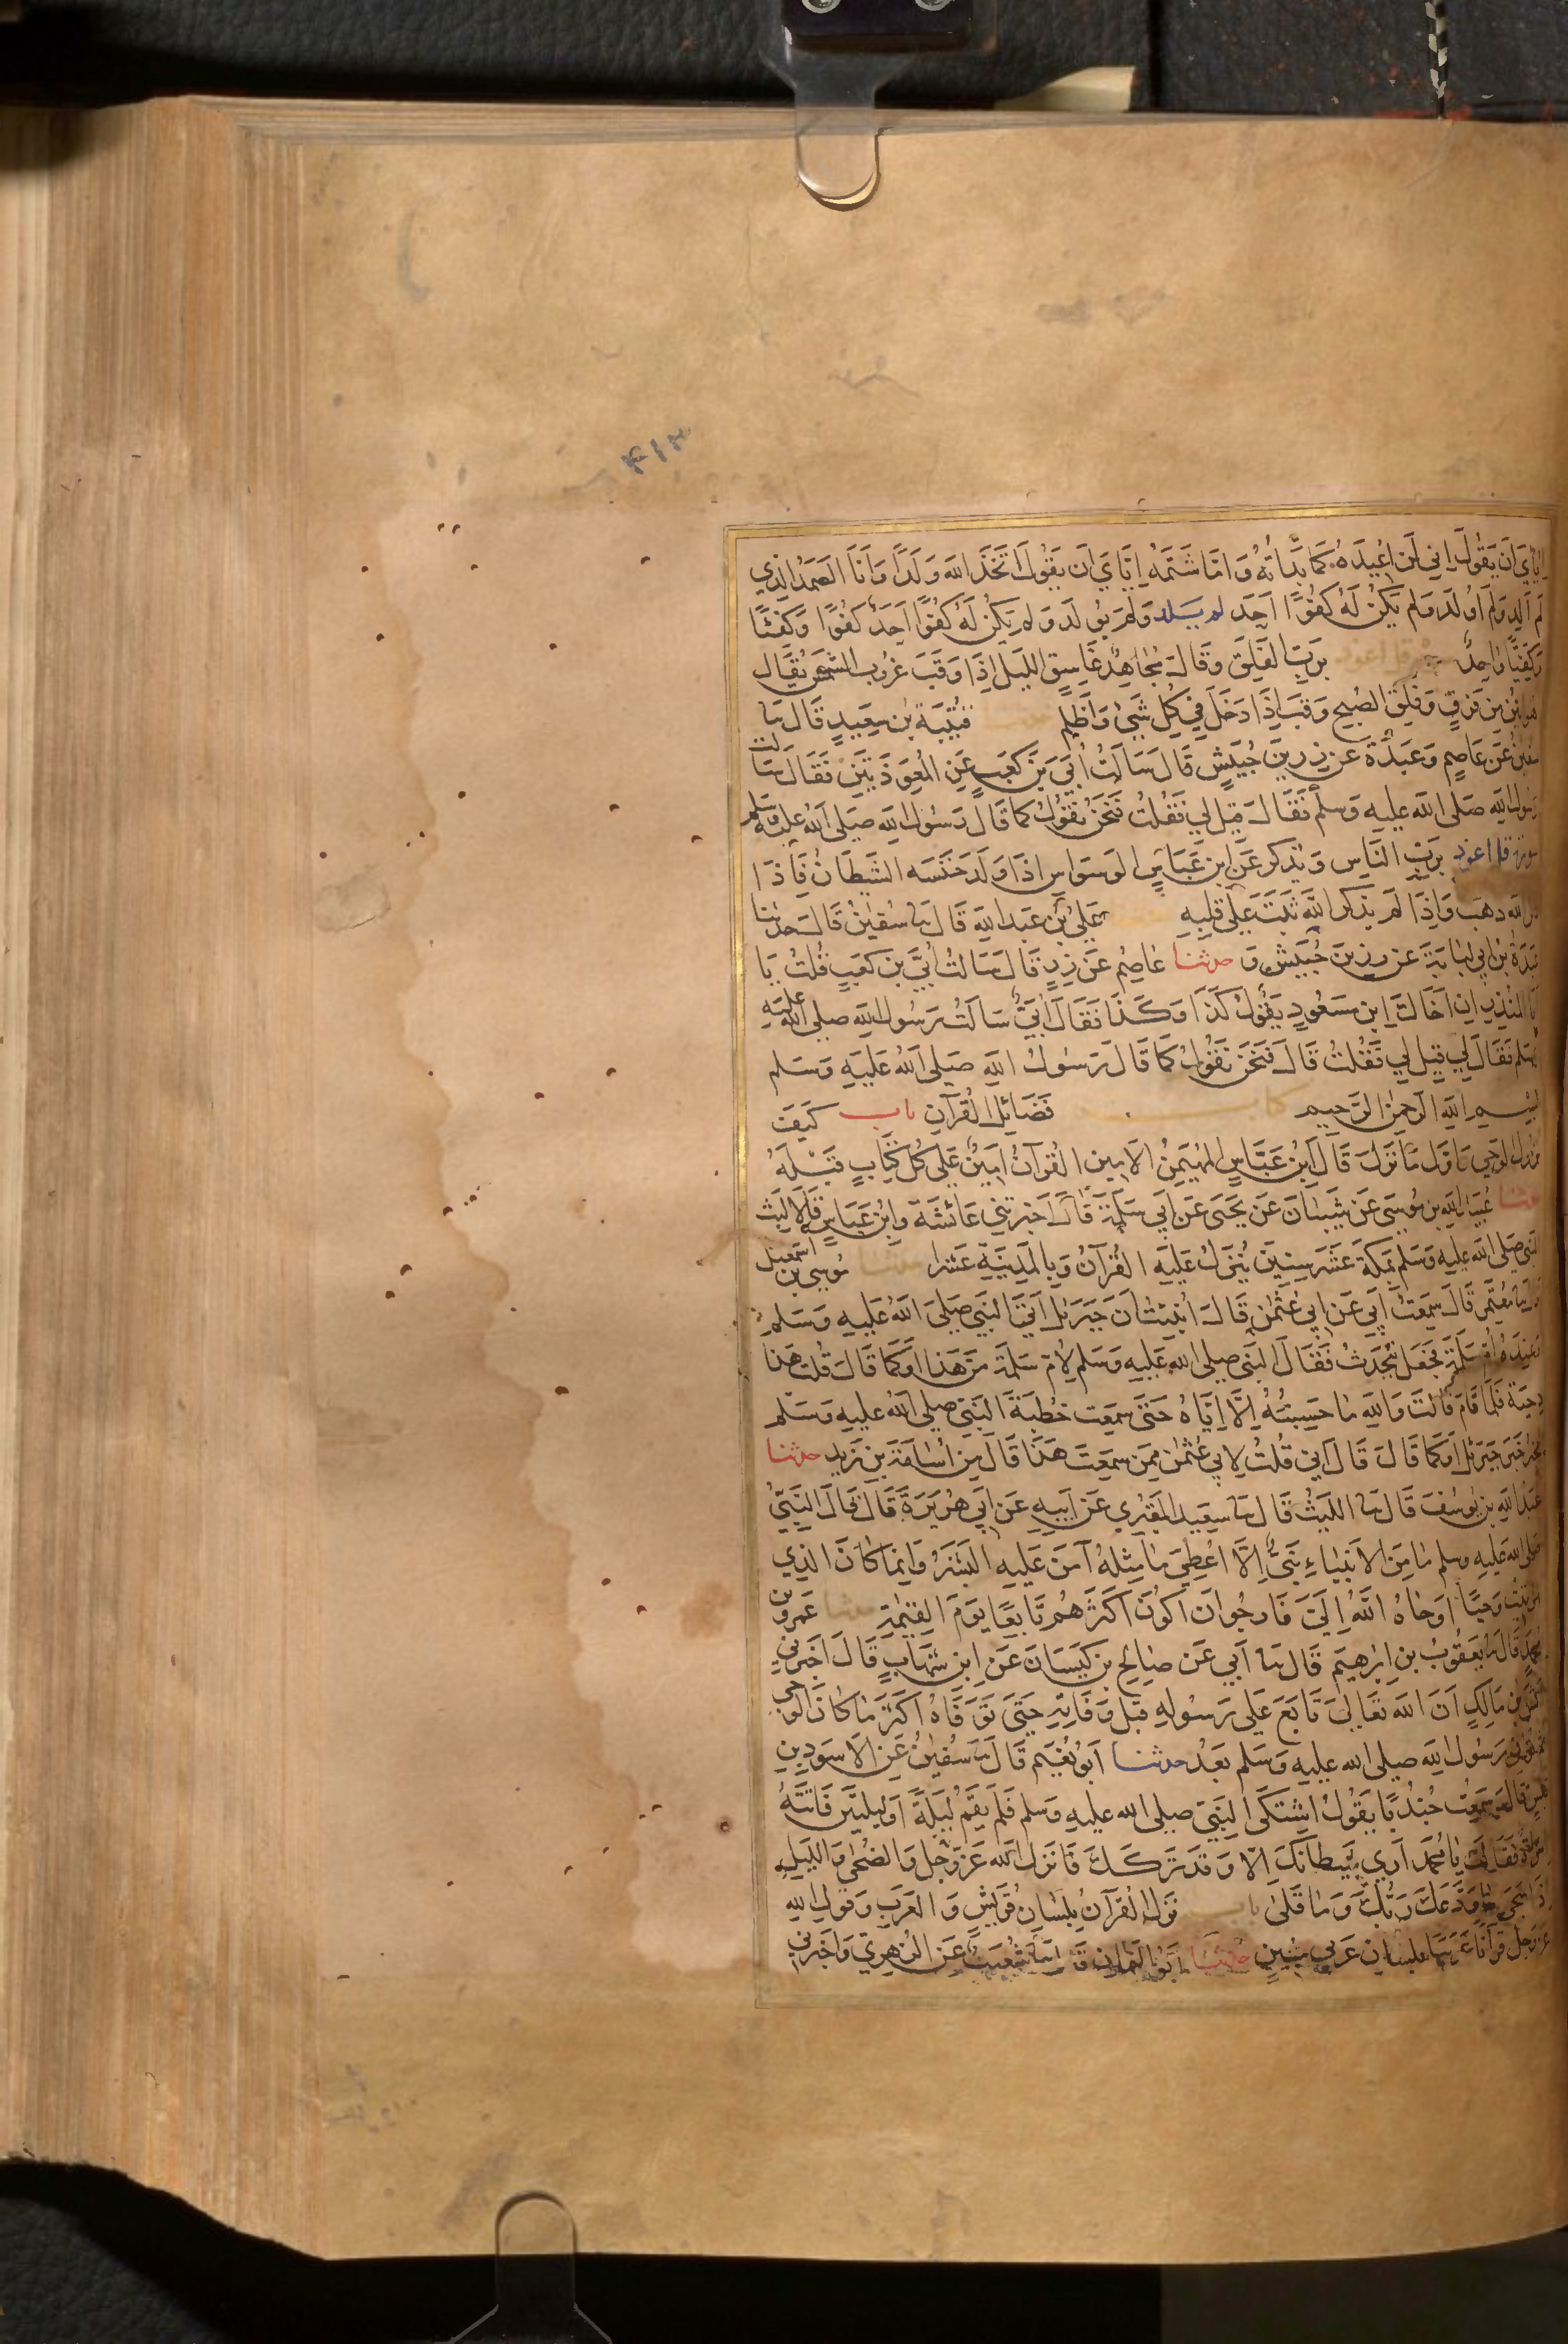 ۴۱۳
اياي ان يقول اني لن اعيده كما بدأته واما شتمه اياي ان يقول اتخذ الله ولدا وانا الصمد الذي
لم الد ولم اولد ولم يكن له كفوا احد لم يلد ولم يولد ولم يكن له كفوا احد كفوا وكفئا
وكفيئا واحد قل اعوذ برب الفلق وقال مجاهد غاسق الليل اذا وقب غروب الشمس يقال
هو ابين من فرق وفلق الصبح وقب اذا دخل في كل شيئ واظلم قتيبة بن سعيد قال ثنا
سفين عن عاصم وعبدة عن زر بن حبيش قال سالت ابي بن كعب عن المعوذتين فقال سالت
رسول الله صلى الله عليه وسلم فقال قيل لي فقلت فنحن نقول كما قال رسول الله صلى الله عليه وسلم
سورة قل اعوذ برب الناس ويذكر عن ابن عباس الوسواس اذا ولد خنسه الشيطان فاذا
ذكر الله ذهب واذا لم يذكر الله ثبت على قلبه علي بن عبد الله قال ثنا سفين قال حدثنا
عبدة بن ابي لبابة عن زر بن حبيش و حدثنا عاصم عن زر قال سالت ابي بن كعب قلت يا
ابا المنذر ان اخاك ابن مسعود يقول كذا وكذا فقال ابي سالت رسول الله صلى الله عليه
وسلم فقال لي قيل لي فقلت قال فنحن نقول كما قال رسول الله صلى الله عليه وسلم
بسم الله الرحمن الرحيم كتاب فضائل القرآن باب كيف
نزل الوحي واول ما نزل قال ابن عباس المهيمن الامين القرآن امين على كل كتاب قبله
حدثنا عبيد الله بن موسى عن شيبان عن يحيى عن ابي سلمة قال اخبرتني عائشة وابن عباس قالا لبث
النبي صلى الله عليه وسلم بمكة عشر سنين ينزل عليه القرآن وبالمدينة عشرا حدثنا موسى بن اسمعيل
قال ثنا معتمر قال سمعت ابي عن ابي عثمن قال انبئت ان جبريل اتى النبي صلى الله عليه وسلم
وعنده ام سلمة فجعل يتحدث فقال النبي صلى الله عليه وسلم لام سلمة من هذا او كما قال قلت هذا
دحية فلما قام قالت والله ما حسبته الا اياه حتى سمعت خطبة النبي صلى الله عليه وسلم
يخبر خبر جبريل او كما قال قال ابي قلت لابي عثمن ممن سمعت هذا قال من اسامة بن زيد حدثنا
عبد الله بن يوسف قال ثنا الليث قال ثنا سعيد المقبري عن ابيه عن ابي هريرة قال قال النبي
صلى الله عليه وسلم ما من الانبياء نبي الا اعطي ما مثله آمن عليه البشر وانما كان الذي
اوتيت وحيا اوحاه الله الي فارجو ان اكون اكثرهم تابعا يوم القيمة حدثنا عمرو بن
محمد قال ثنا يعقوب بن ابرهيم قال ثنا ابي عن صالح بن كيسان عن ابن شهاب قال اخبرني
انس بن مالك ان الله تعالى تابع على رسوله قبل وفاته حتى توفاه اكثر ما كان الوحي
ثم توفي رسول الله صلى الله عليه وسلم بعد حدثنا ابو نعيم قال ثنا سفين عن الاسود بن
قيس قال سمعت جندبا يقول اشتكى النبي صلى الله عليه وسلم فلم يقم ليلة او ليلتين فاتته
امراة فقالت يا محمد ارى شيطانك الا وقد تركك فانزل الله عز وجل والضحى والليل
اذا سجى ما ودعك ربك وما قلى باب نزل القرآن بلسان قريش والعرب وقول الله
عز وجل قرآنا عربيا بلسان عربي مبين حدثنا ابو اليمان قال ثنا شعيب عن الزهري واخبرني